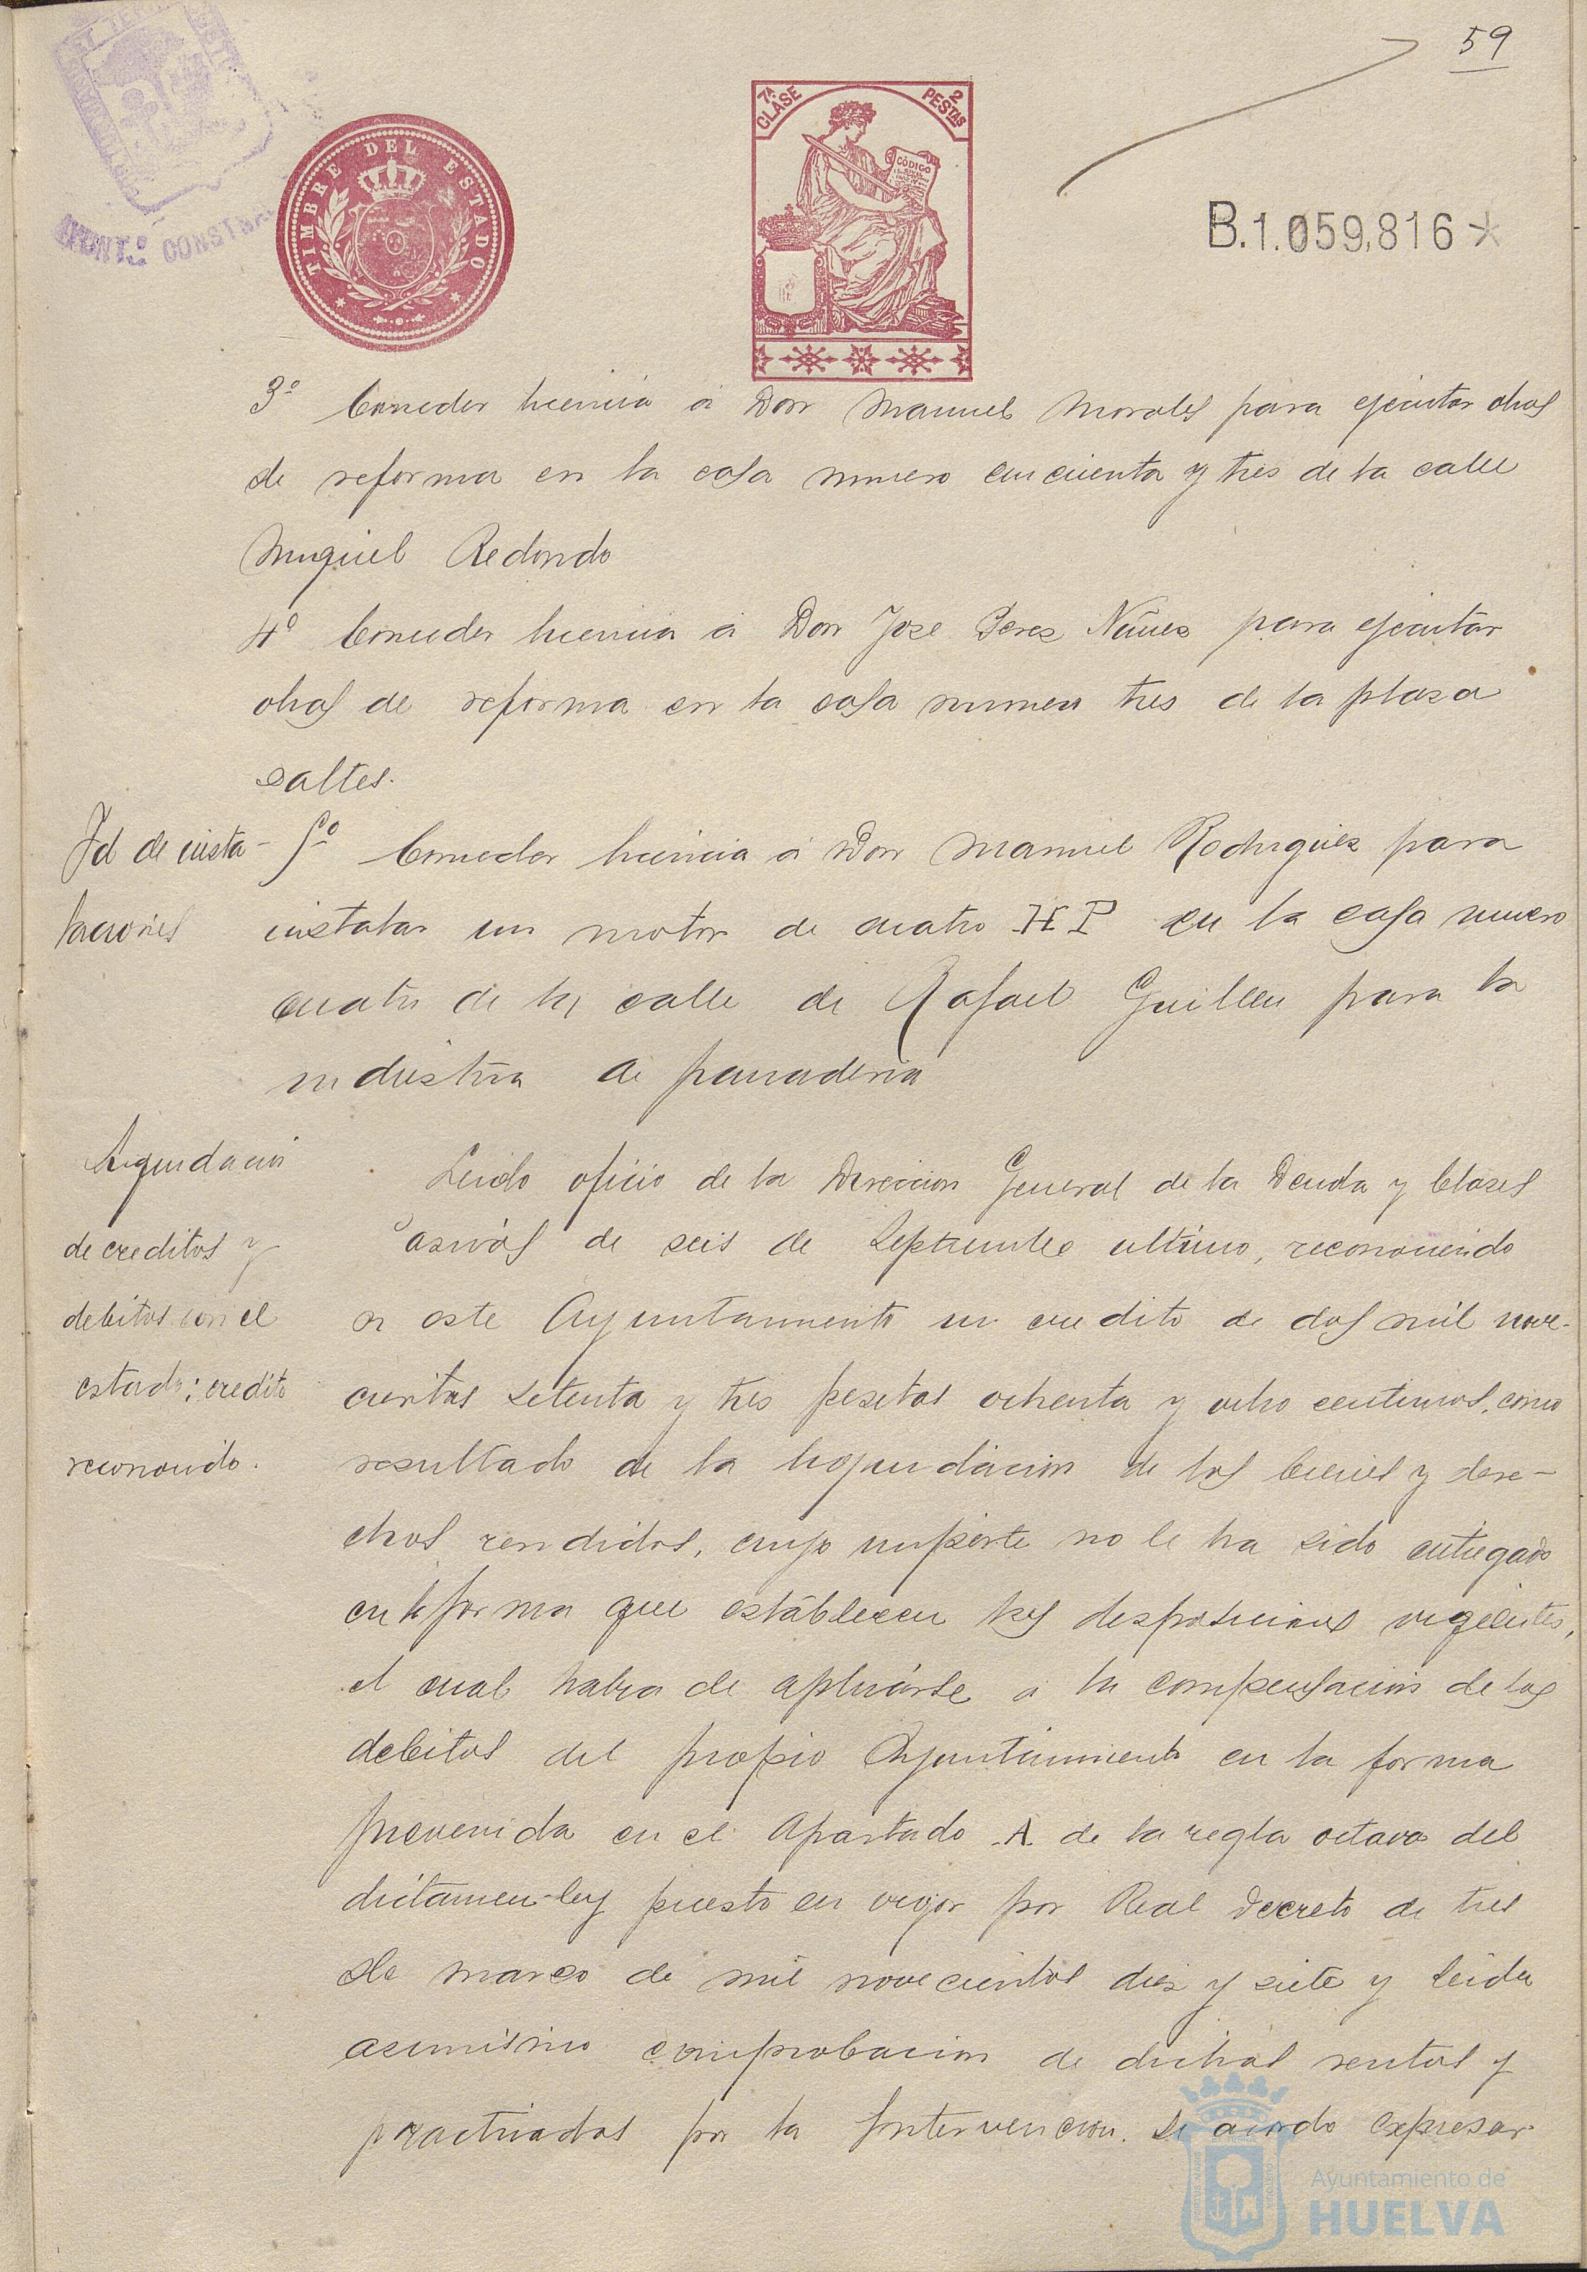 59
TIMBRE DEL ESTADO
7ª CLASE
2 PESTAS
CÓDIGO
AYUNTº CONST
B.1.059,816*
3º Conceder licencia á Don Manuel Morales para ejecutar obras
de reforma en la casa numero cincuenta y tres de la calle
Miguel Redondo
4º Conceder licencia á Don Jose Perez Nuñez para ejecutar
obras de reforma en la casa numero tres de la plaza
Saltes.
Id de insta-
laciones
5º Conceder licencia á Don Manuel Rodriguez para
instalar un motor de cuatro HP en la casa numero
cuatro de la calle de Rafael Guillen para la
industria de panaderia
Liquidacion
de creditos y
debitos con el
estado: credito
reconocido.
Leido oficio de la Direccion General de la Deuda y Clases
Pasivas de seis de Septiembre ultimo, reconociendo
a este Ayuntamiento un credito de dos mil nove-
cientas setenta y tres pesetas ochenta y ocho centimos, como
resultado de la liquidacion de los bienes y dere-
chos rendidos, cuyo importe no le ha sido entregado
en la forma que establecen las disposiciones vigentes,
el cual habra de aplicarse a la compensacion de los
debitos del propio Ayuntamiento en la forma
prevenida en el Apartado A. de la regla octava del
dictamen-ley puesto en vigor por Real Decreto de tres
de marzo de mil novecientos diez y siete y leida
asimismo comprobacion de dichas rentas y
practicadas por la Intervencion. Se acordo expresar
Ayuntamiento de
HUELVA